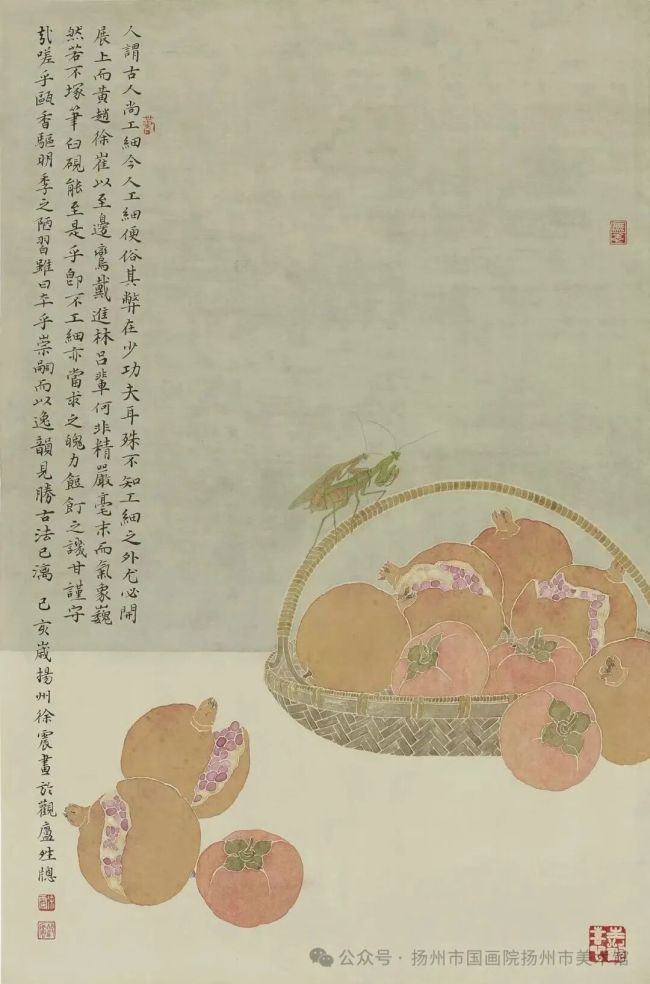 人謂古人尚工細今人工細便俗其弊在少功夫耳殊不知工細之外尤必開
展上而黃趙徐崔以至邊鸞戴進林呂輩何非精嚴毫末而氣象巍
然若不塚筆臼硯能至是乎即不工細亦當求之魄力餖飣之譏甘謹守
哉嗟乎甌香驅明季之陋習雖曰夲乎崇嗣而以逸韻見勝古法已漓 己亥歲揚州徐震畫於觀廬牕
公众号 · 扬州市国画院扬州市美术馆